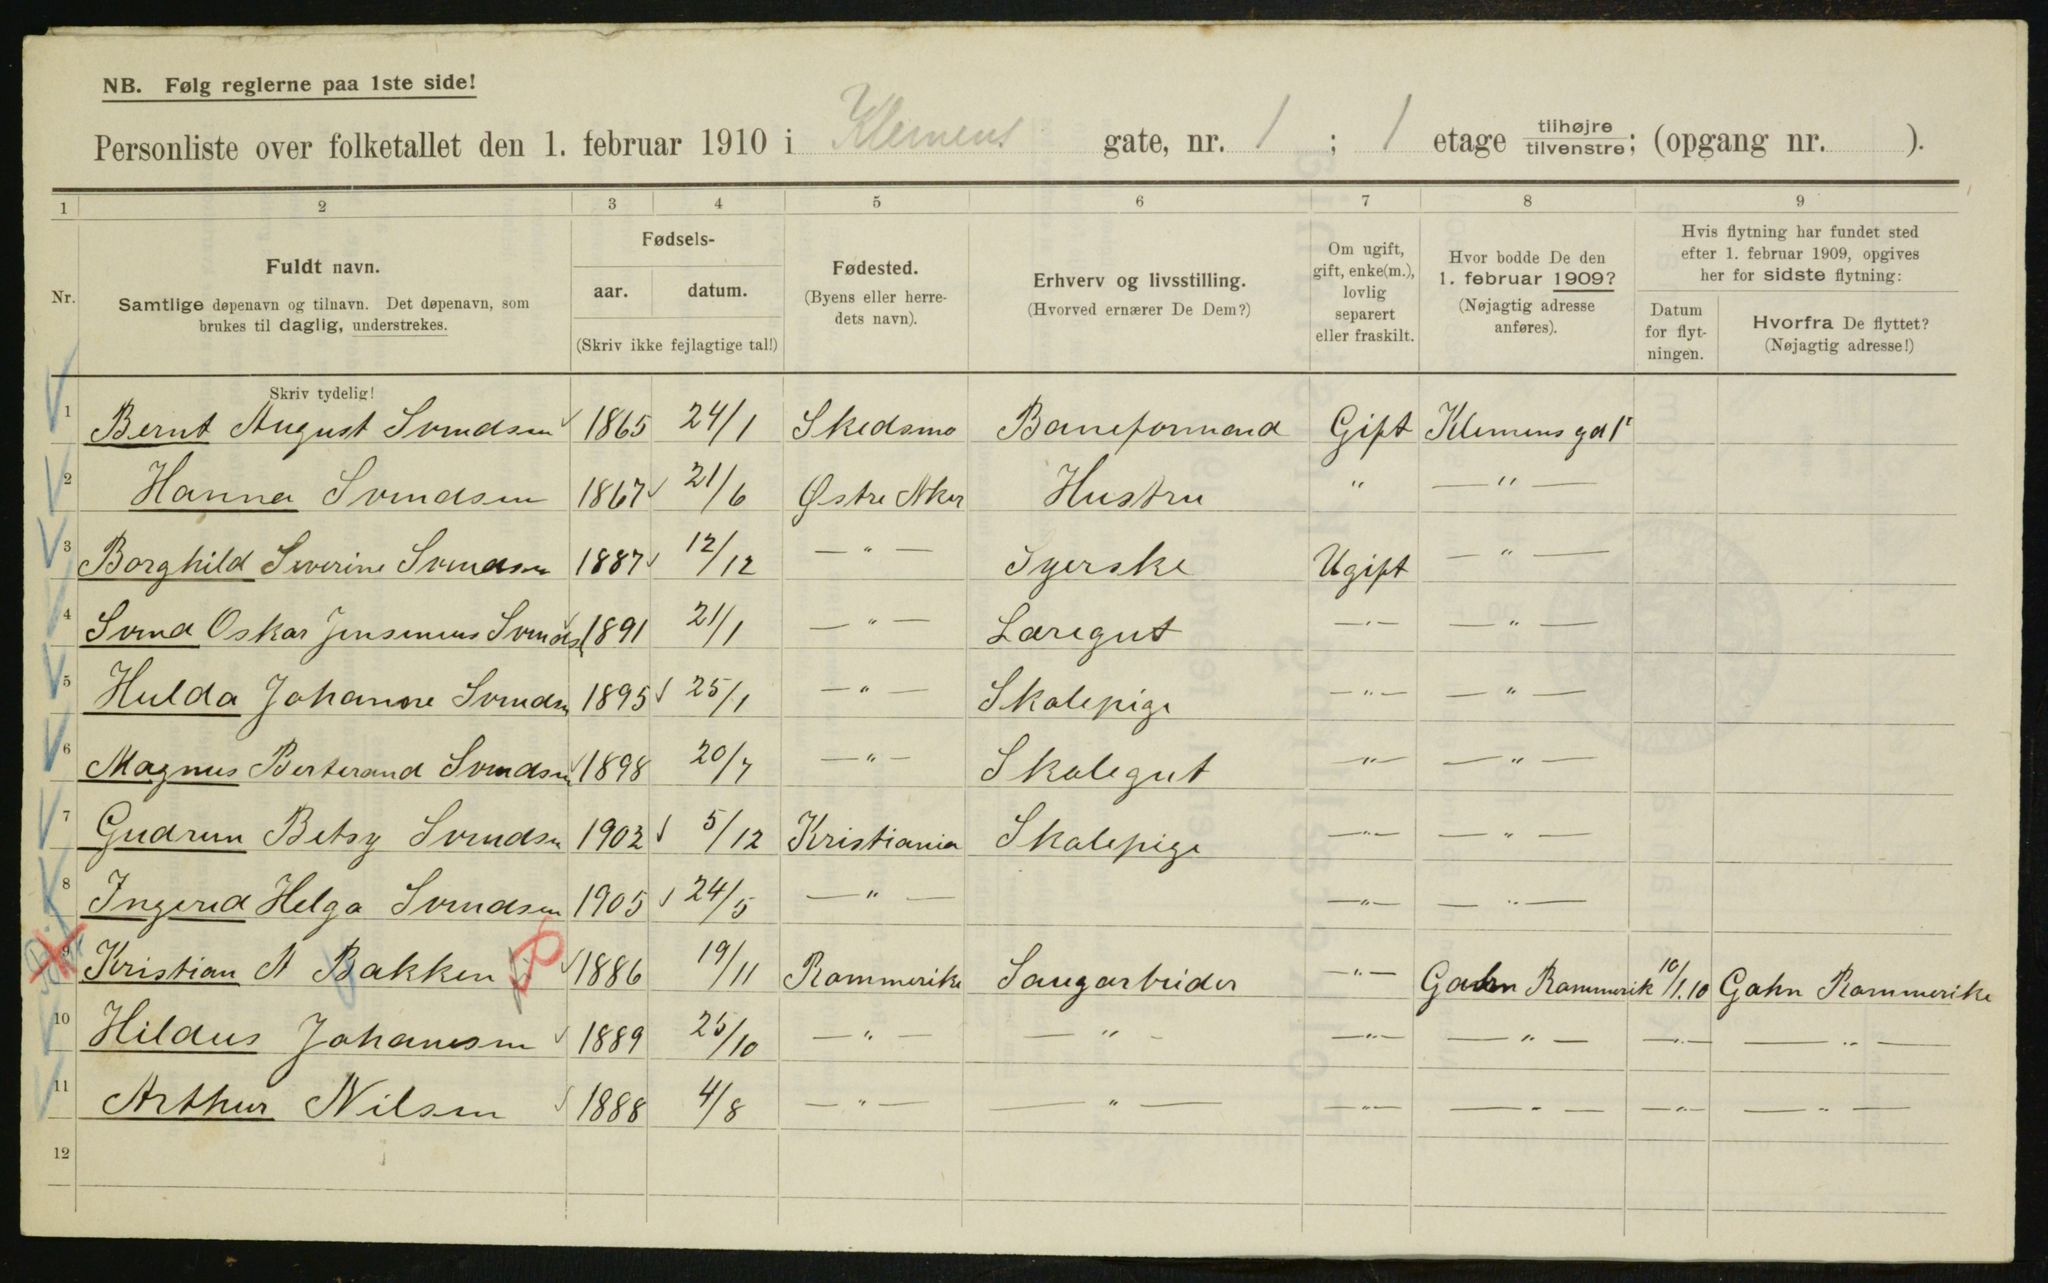 NB. Følg reglerne paa 1ste side!
Personliste over folketallet den 1. februar 1910 i Klemens gate, nr. 1 ; 1 etage tilhøjre tilvenstre; (opgang nr. ).
1 2 3 4 5 6 7 8 9
Nr.
Fuldt navn.
Samtlige døpenavn og tilnavn. Det døpenavn, som
brukes til daglig, understrekes.
Skriv tydelig!
Fødsels-
aar. datum.
(Skriv ikke fejlagtige tal!)
Fødested.
(Byens eller herre-
dets navn).
Erhverv og livsstilling.
(Hvorved ernærer De Dem?)
Om ugift,
gift, enke(m.),
lovlig
separert
eller fraskilt.
Hvor bodde De den
1. februar 1909?
(Nøjagtig adresse
anføres).
Hvis flytning har fundet sted
efter 1. februar 1909, opgives
her for sidste flytning:
Datum
for flyt-
ningen.
Hvorfra De flyttet?
(Nøjagtig adresse!)
1 Bernt August Svendsen 1865 24/1 Skedsmo Baneformand Gift Klemens gd 1
2 Hanna Svendsen 1867 21/6 Østre Aker Hustru " — " —
3 Borghild Severine Svendsen 1887 12/12 — " — Syerske Ugift — " —
4 Svend Oskar Jensenius Svends 1891 21/1 — " — Læregut — " — — " —
5 Hulda Johanne Svendsn 1895 25/1 — " — Skolepige — " — — " —
6 Magnus Berterand Svendsen 1898 20/7 — " — Skolegut — " — — " —
7 Gudrun Betsy Svendsn 1902 5/12 Kristiania Skolepige — " — — " —
8 Ingerid Helga Svendsen 1905 24/5 — " — — " — — " —
9 Kristian A Bakken 1886 19/11 Rommerike Saugarbeider — " — Gahn Rommerik 10/1.10 Gahn Rommerike
10 Hildus Johansen 1889 25/10 — " — — " — — " — — " — — " — — " —
11 Arthur Nilsen 1888 4/8 — " — — " — — " — — " — — " — — " —
12